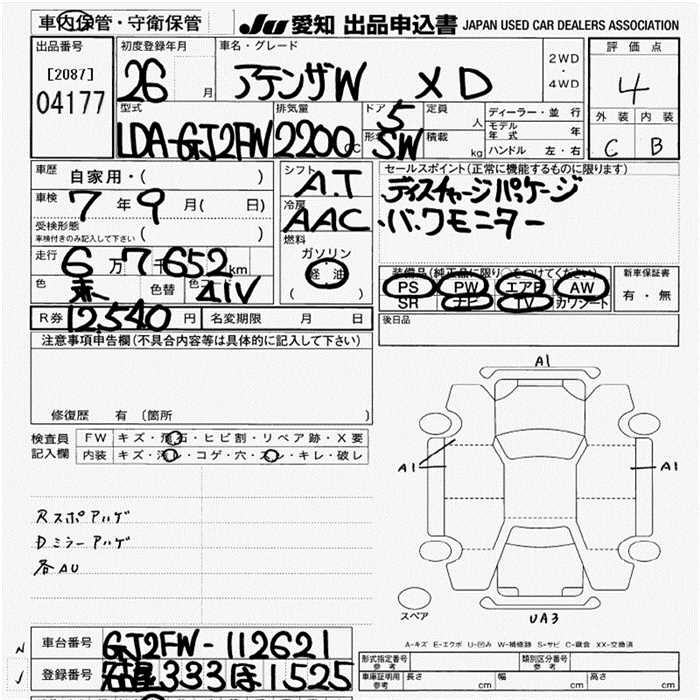 車内保管・守衛保管
JU 愛知 出品申込書 JAPAN USED CAR DEALERS ASSOCIATION
出品番号
[2087]
04177
初度登録年月
26 月
車名・グレード
アテンザW XD
2WD
・
4WD
評価点
4
外装 内装
C B
型式
LDA-GJ2FW
排気量
2200 cc
ドア
5
形状
SW
定員
人
積載
kg
ディーラー・並行
モデル年式 年
ハンドル 左・右
車歴
自家用・( )
車検
7年9月( 日)
受検形態
車検付きのみ記入して下さい ( )
走行
6万7千652km
色
赤
色替
41V
シフト
A.T
冷房
AAC
燃料
ガソリン
軽油
( )
セールスポイント(正常に機能するものに限ります)
ディスチャージパッケージ
・バックモニター
装備品(純正品に限り○をつけてください)
PS PW エアB AW
SR ナビ TV カワシート
新車保証書
有・無
後日品
R券 12,540円
名変期限 月 日
注意事項申告欄(不具合内容等は具体的に記入して下さい)
修復歴 有 (箇所 )
検査員
記入欄
FW キズ・飛石・ヒビ割・リペア跡・X要
内装 キズ・汚レ・コゲ・穴・スレ・キレ・破レ
Rスポアハゲ
Dミラーアハゲ
各AU
A1
A1
A1
UA3
スペア
A-キズ E-エクボ U-凹み W-補修跡 S-サビ C-腐食 XX-交換済
車台番号 GJ2FW-112621
登録番号 名古屋333ほ1525
形式指定番号
参考
類別区分番号
参考
車庫証明用
参考
長さ cm 幅 cm 高さ cm